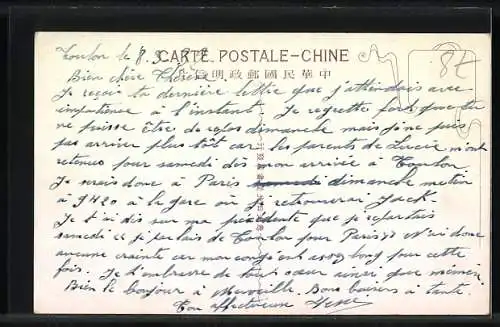 Toulon le 8. 9.
CARTE POSTALE-CHINE
中華民國郵政明信片
8€
Bien chère Thérèse
Je reçois ta dernière lettre que j'attendais avec
impatience à l'instant. Je regrette fort que tu
ne puisse être de repos dimanche mais je ne puis
pas arriver plus tôt car les parents de m'ont
retenus pour samedi dès mon arrivée à Toulon.
Je serais donc à Paris samedi dimanche matin
à 9H20 à la gare où je retrouverai Jack.
Je t'ai dis sur ma précédente que je repartais
samedi et je partais de Toulon pour Paris. N'ai donc
aucune crainte car mon congé est assez long pour cette
fois. Je t'embrasse de tout cœur ainsi que mémère.
Bien le bonjour à Merveille. Bons baisers à tante.
Ton affectueux